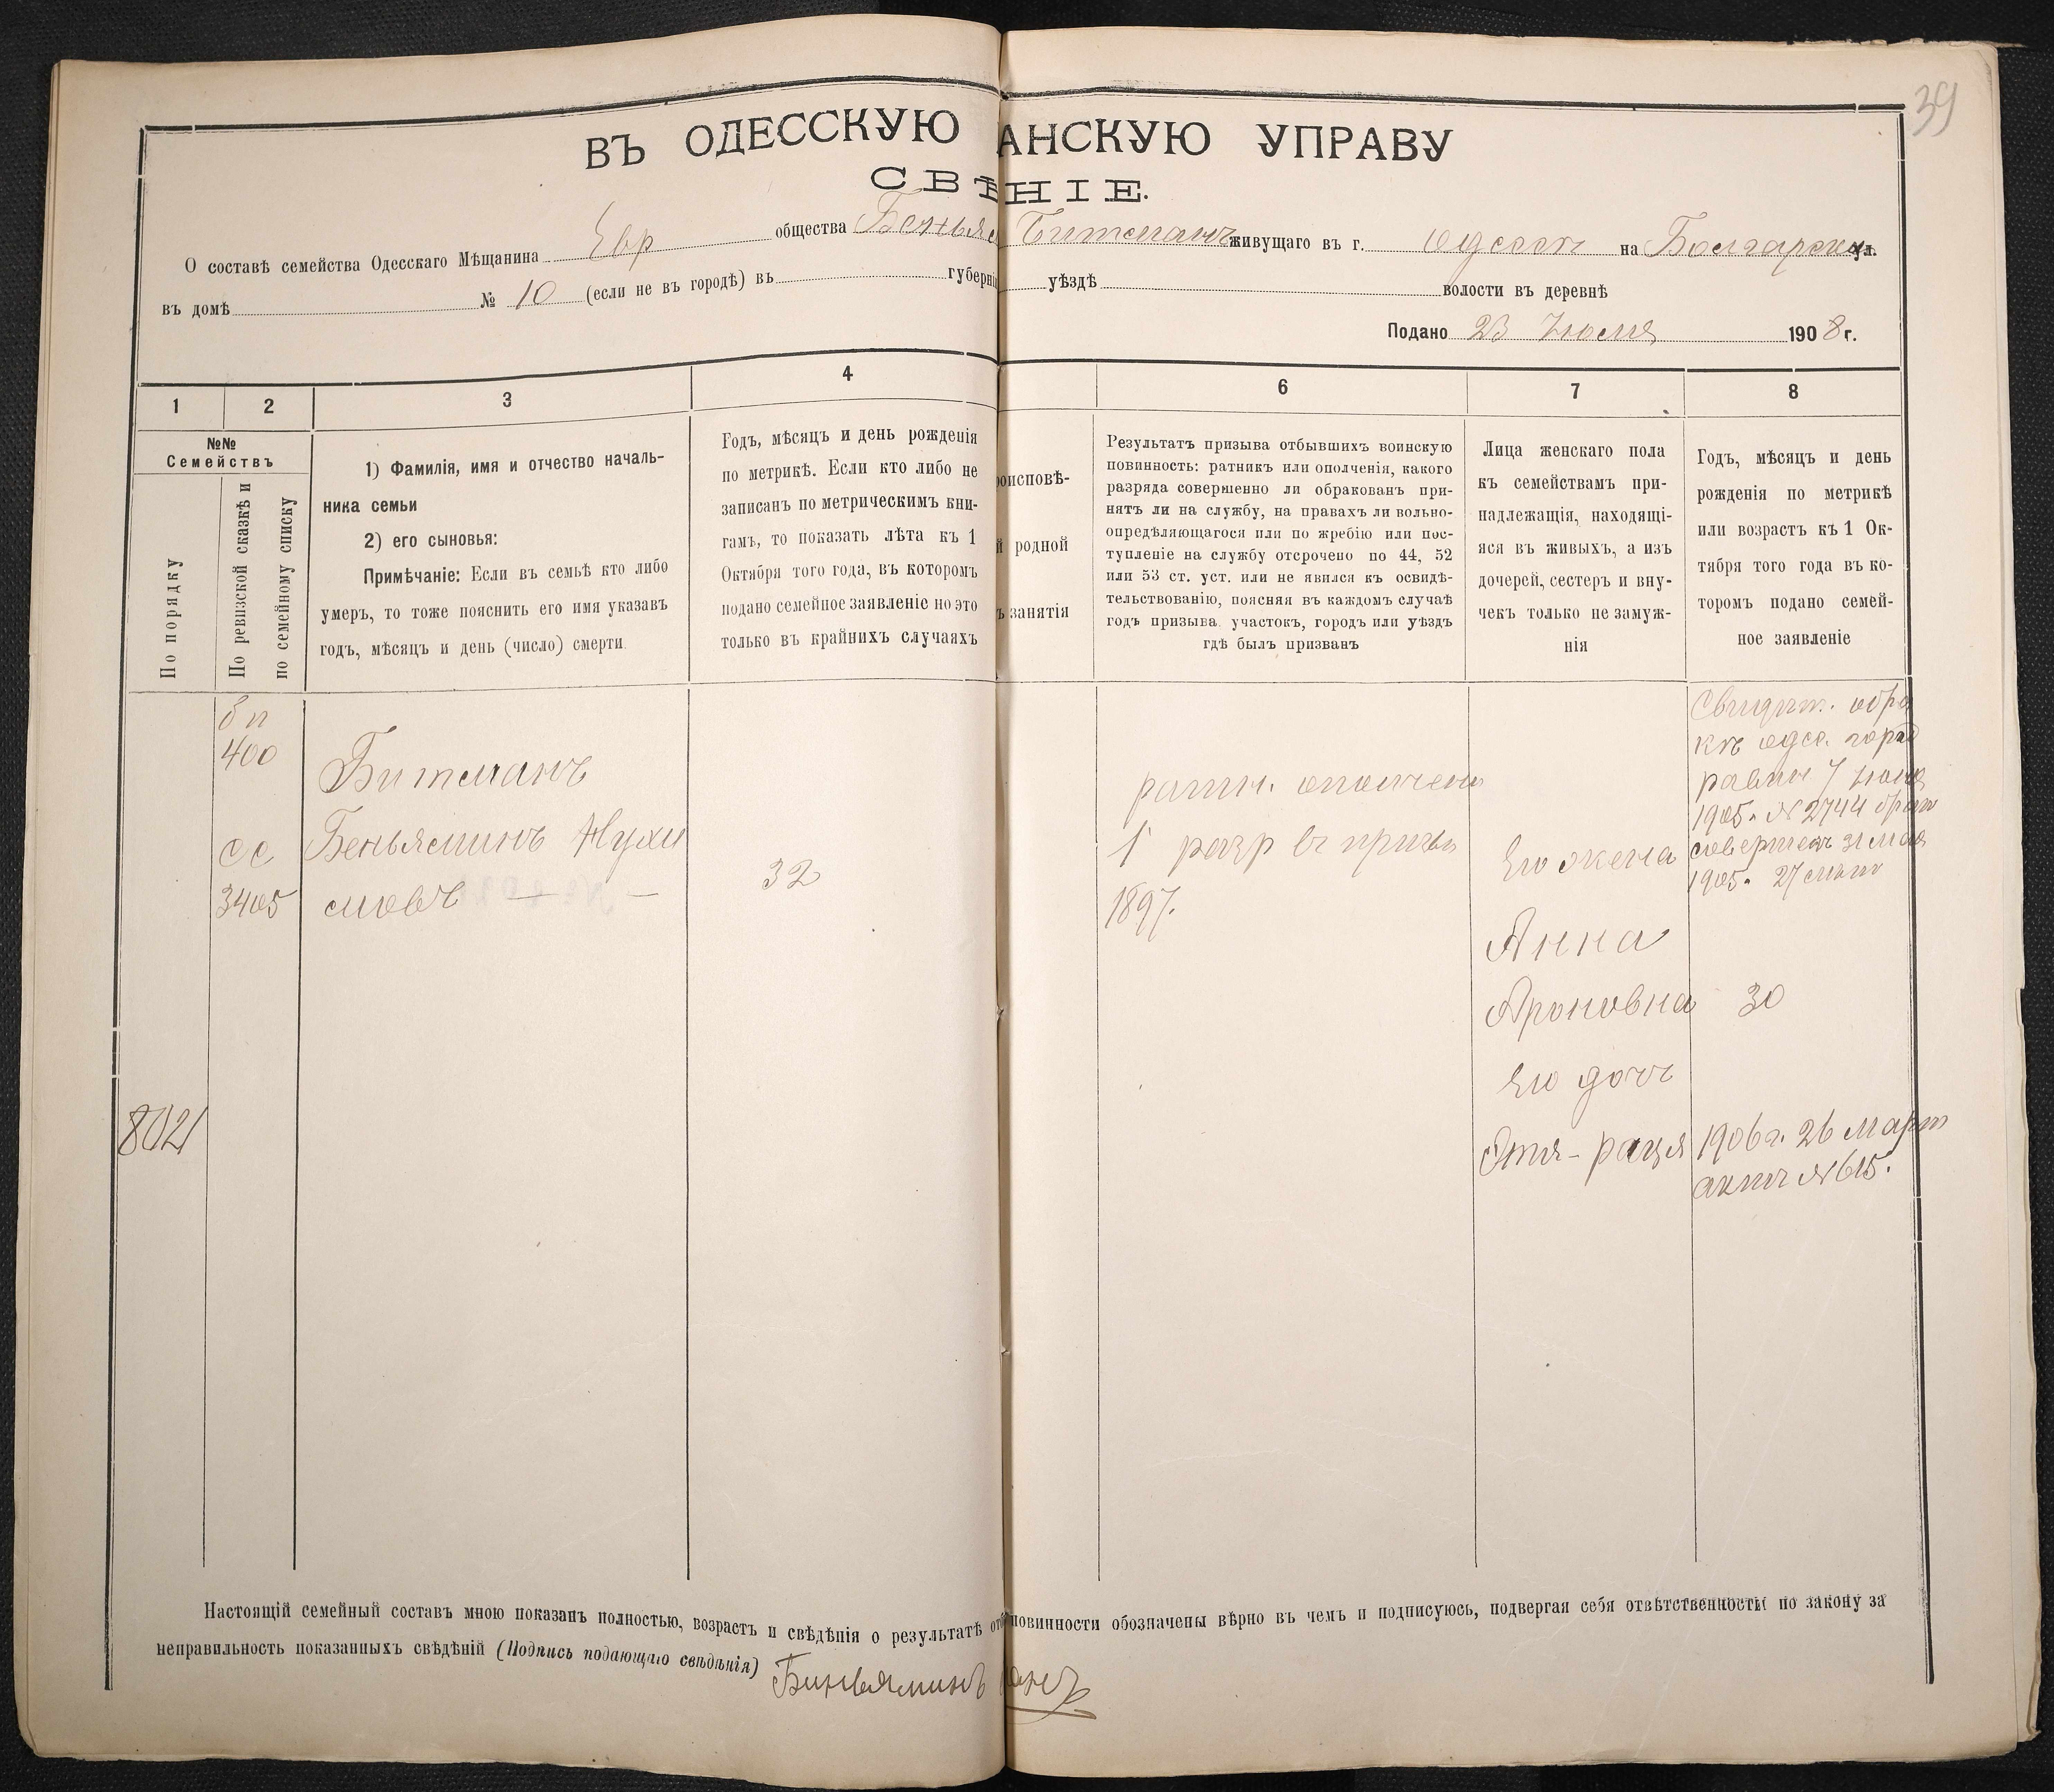 39
ВЪ ОДЕССКУЮ АНСКУЮ УПРАВУ
СВѢНІЕ.
О составѣ семейства Одесскаго Мѣщанина Евр общества Беньям Битманъ живущаго въ г. Одессѣ на Болгарской ул.
въ домѣ № 10 (если не въ городѣ) въ губерні уѣздѣ волости въ деревнѣ
Подано 23 Іюля 1908 г.
1 2 3 4 6 7 8
№№
Семействъ
По порядку
По ревизской сказкѣ и
по семейному списку
1) Фамилія, имя и отчество началь-
ника семьи
2) его сыновья:
Примѣчаніе: Если въ семьѣ кто либо
умеръ, то тоже пояснить его имя указавъ
годъ, мѣсяцъ и день (число) смерти
Годъ, мѣсяцъ и день рожденія
по метрикѣ. Если кто либо не
записанъ по метрическимъ кни-
гамъ, то показать лѣта къ 1
Октября того года, въ которомъ
подано семейное заявленіе но это
только въ крайнихъ случаяхъ
роисповѣ-
й родной
ъ занятія
Результатъ призыва отбывшихъ воинскую
повинность: ратникъ или ополченія, какого
разряда совершенно ли обракованъ при-
нятъ ли на службу, на правахъ ли вольно-
опредѣляющагося или по жребію или пос-
тупленіе на службу отсрочено по 44, 52
или 53 ст. уст. или не явился къ освидѣ-
тельствованію, поясняя въ каждомъ случаѣ
годъ призыва участокъ, городъ или уѣздъ
гдѣ былъ призванъ
Лица женскаго пола
къ семействамъ при-
надлежащія, находящі-
яся въ живыхъ, а изъ
дочерей, сестеръ и вну-
чекъ только не замуж-
нія
Годъ, мѣсяцъ и день
рожденія по метрикѣ
или возрастъ къ 1 Ок-
тября того года въ ко-
торомъ подано семей-
ное заявленіе
8021
бп
400
сс
3405
Битманъ
Беньяминъ Нухи
мовъ — —
32
ратн. ополчен
1 разр въ призы
1897.
Его жена
Анна
Ароновна
Его дочь
Этя-Рася
Свидѣт. о бра
кѣ одес. город
равин 7 Іюня
1905 № 2744 бракъ
совершенъ 31 мая
1905. 27
30
1906 г. 26 март
актъ № 615.
Настоящій семейный составъ мною показанъ полностью, возрастъ и свѣдѣнія о результатѣ отб повинности обозначены вѣрно въ чемъ и подписуюсь, подвергая себя отвѣтственности по закону за
неправильность показанныхъ свѣдѣній (Подпись подающаго свѣдѣнія) Биньяминъ анъ